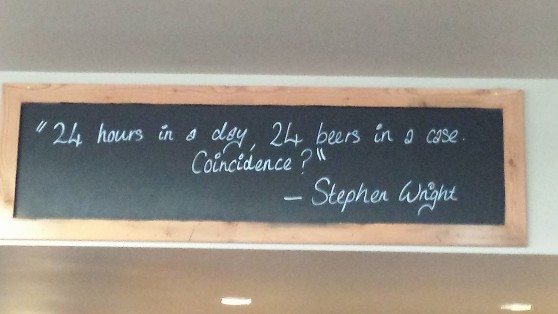 "24 hours in a day, 24 beers in a case.
Coincidence?"
— Stephen Wright